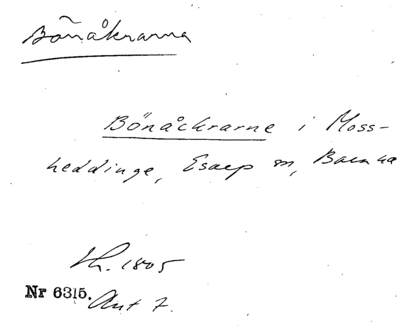 Bönåkrarna
Bönåckrarne i Moss-
heddinge, Esarp sn, Bara hd
Sk. 1805
Nr 6315. Akt 7.